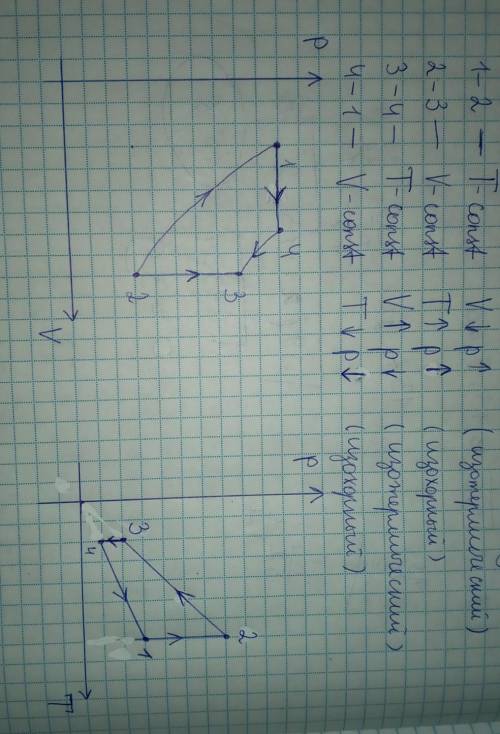 1-2 — T-const V↓ p↑ (изотермический)
2-3 — V-const T↑ p↑ (изохорный)
3-4 — T-const V↑ p↓ (изотермический)
4-1 — V-const T↓ p↓ (изохорный)
p
1
4
3
2
V
p
2
3
4
1
T